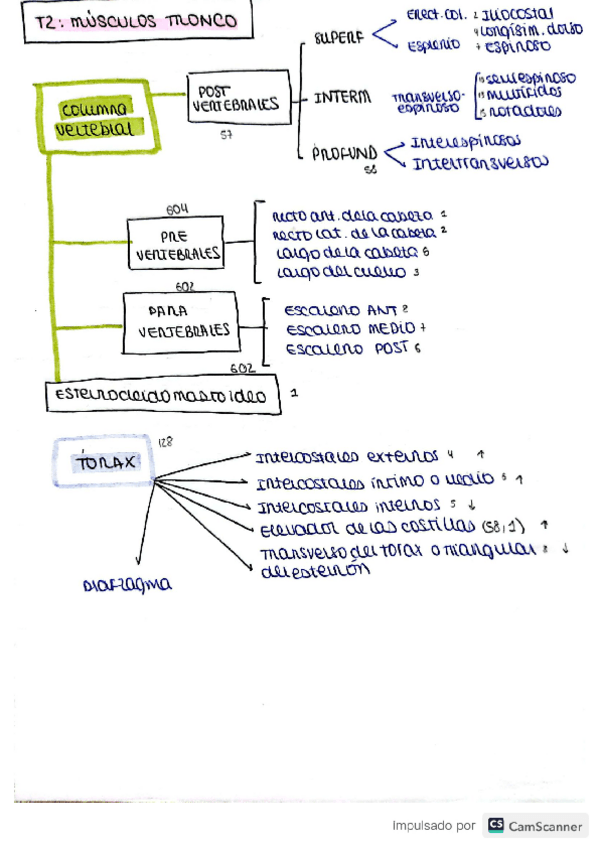 T2: MÚSCULOS TRONCO
COLUMNA
VERTEBRAL
POST
VERTEBRALES
57
SUPERF
Erect. col. 2 Iliocostal
4 Longísim. dorso
Esplenio 7 Espinoso
INTERM
Transverso-
espinoso
semiespinoso
multífidos
rotadores
PROFUND
58
Interespinosos
Intertransversos
604
PRE
VERTEBRALES
Recto ant. de la cabeza 1
Recto lat. de la cabeza 2
Largo de la cabeza 6
Largo del cuello 3
602
PARA
VERTEBRALES
ESCALENO ANT 2
ESCALENO MEDIO 7
ESCALENO POST 6
602
Esternocleidomastoideo 1
TÓRAX
128
Intercostales externos 4 ↑
Intercostales íntimo o medio 5 ↑
Intercostales internos 5 ↓
Elevador de las costillas (58,1) ↑
Transverso del tórax o triangular ↓
del esternón
DIAFRAGMA
Impulsado por CS CamScanner